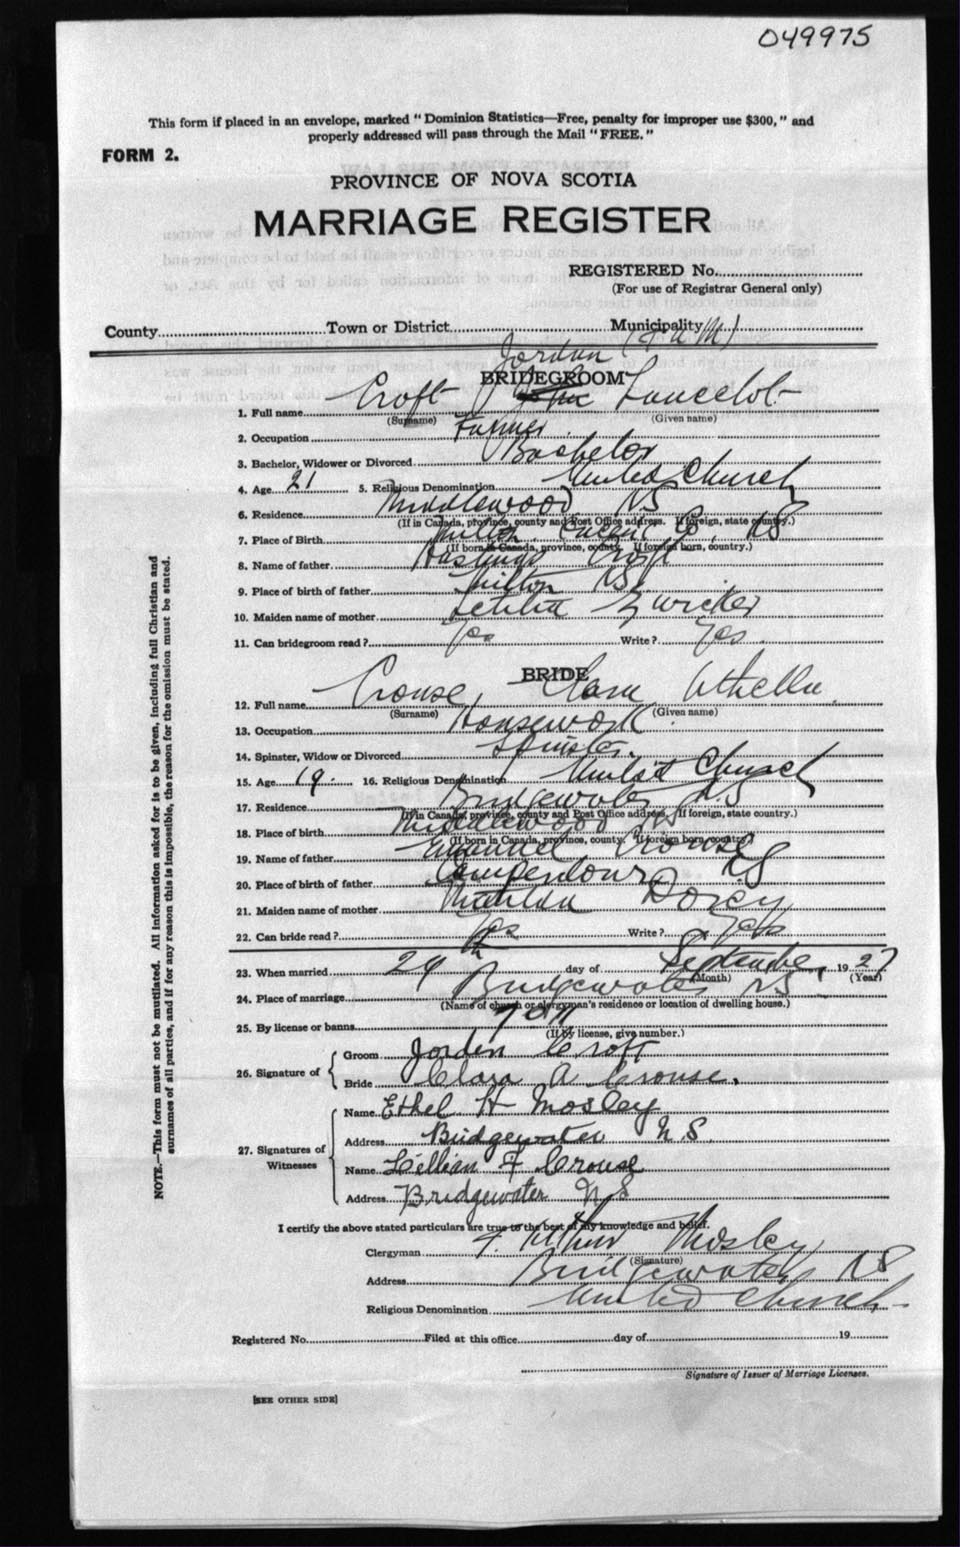 049975
This form if placed in an envelope, marked "Dominion Statistics—Free, penalty for improper use $300," and
properly addressed will pass through the Mail "FREE."
FORM 2.
PROVINCE OF NOVA SCOTIA
MARRIAGE REGISTER
REGISTERED No.
(For use of Registrar General only)
County Town or District Municipality
Jordan
BRIDEGROOM
1. Full name Croft Lancelot
(Surname) (Given name)
2. Occupation Farmer
3. Bachelor, Widower or Divorced Bachelor
4. Age 21 5. Religious Denomination United Church
6. Residence Middlewood NS
(If in Canada, province, county and Post Office address. If foreign, state country.)
7. Place of Birth Milton Queens Co. NS
(If born in Canada, province, county. If foreign born, country.)
8. Name of father Hastings Croft
9. Place of birth of father Milton NS
10. Maiden name of mother Letitia Zwicker
11. Can bridegroom read? Yes Write? Yes
BRIDE
12. Full name Crouse, Clara Athella
(Surname) (Given name)
13. Occupation Housework
14. Spinster, Widow or Divorced Spinster.
15. Age 19 16. Religious Denomination United Church
17. Residence Bridgewater NS
(If in Canada, province, county and Post Office address. If foreign, state country.)
18. Place of birth Middlewood NS
(If born in Canada, province, county. If foreign born, country.)
19. Name of father Emanuel Crouse
20. Place of birth of father Camperdown NS
21. Maiden name of mother Matilda Dorey
22. Can bride read? Yes Write? Yes
23. When married 24 day of September, 1927
(Month) (Year)
24. Place of marriage Bridgewater NS
(Name of church or clergyman's residence or location of dwelling house.)
25. By license or banns
(If by license, give number.)
26. Signature of
Groom Jorden Croft
Bride Clara A Crouse.
27. Signatures of
Witnesses
Name Ethel H Mosley
Address Bridgewater N S.
Name Lillian F Crouse
Address Bridgewater N S
I certify the above stated particulars are true to the best of my knowledge and belief.
Clergyman F. Arthur Mosley
(Signature)
Address Bridgewater NS
Religious Denomination United Church
Registered No. Filed at this office day of 19
Signature of Issuer of Marriage Licenses.
[SEE OTHER SIDE]
NOTE.—This form must not be mutilated. All information asked for is to be given, including full Christian and
surnames of all parties, and if for any reason this is impossible, the reason for the omission must be stated.